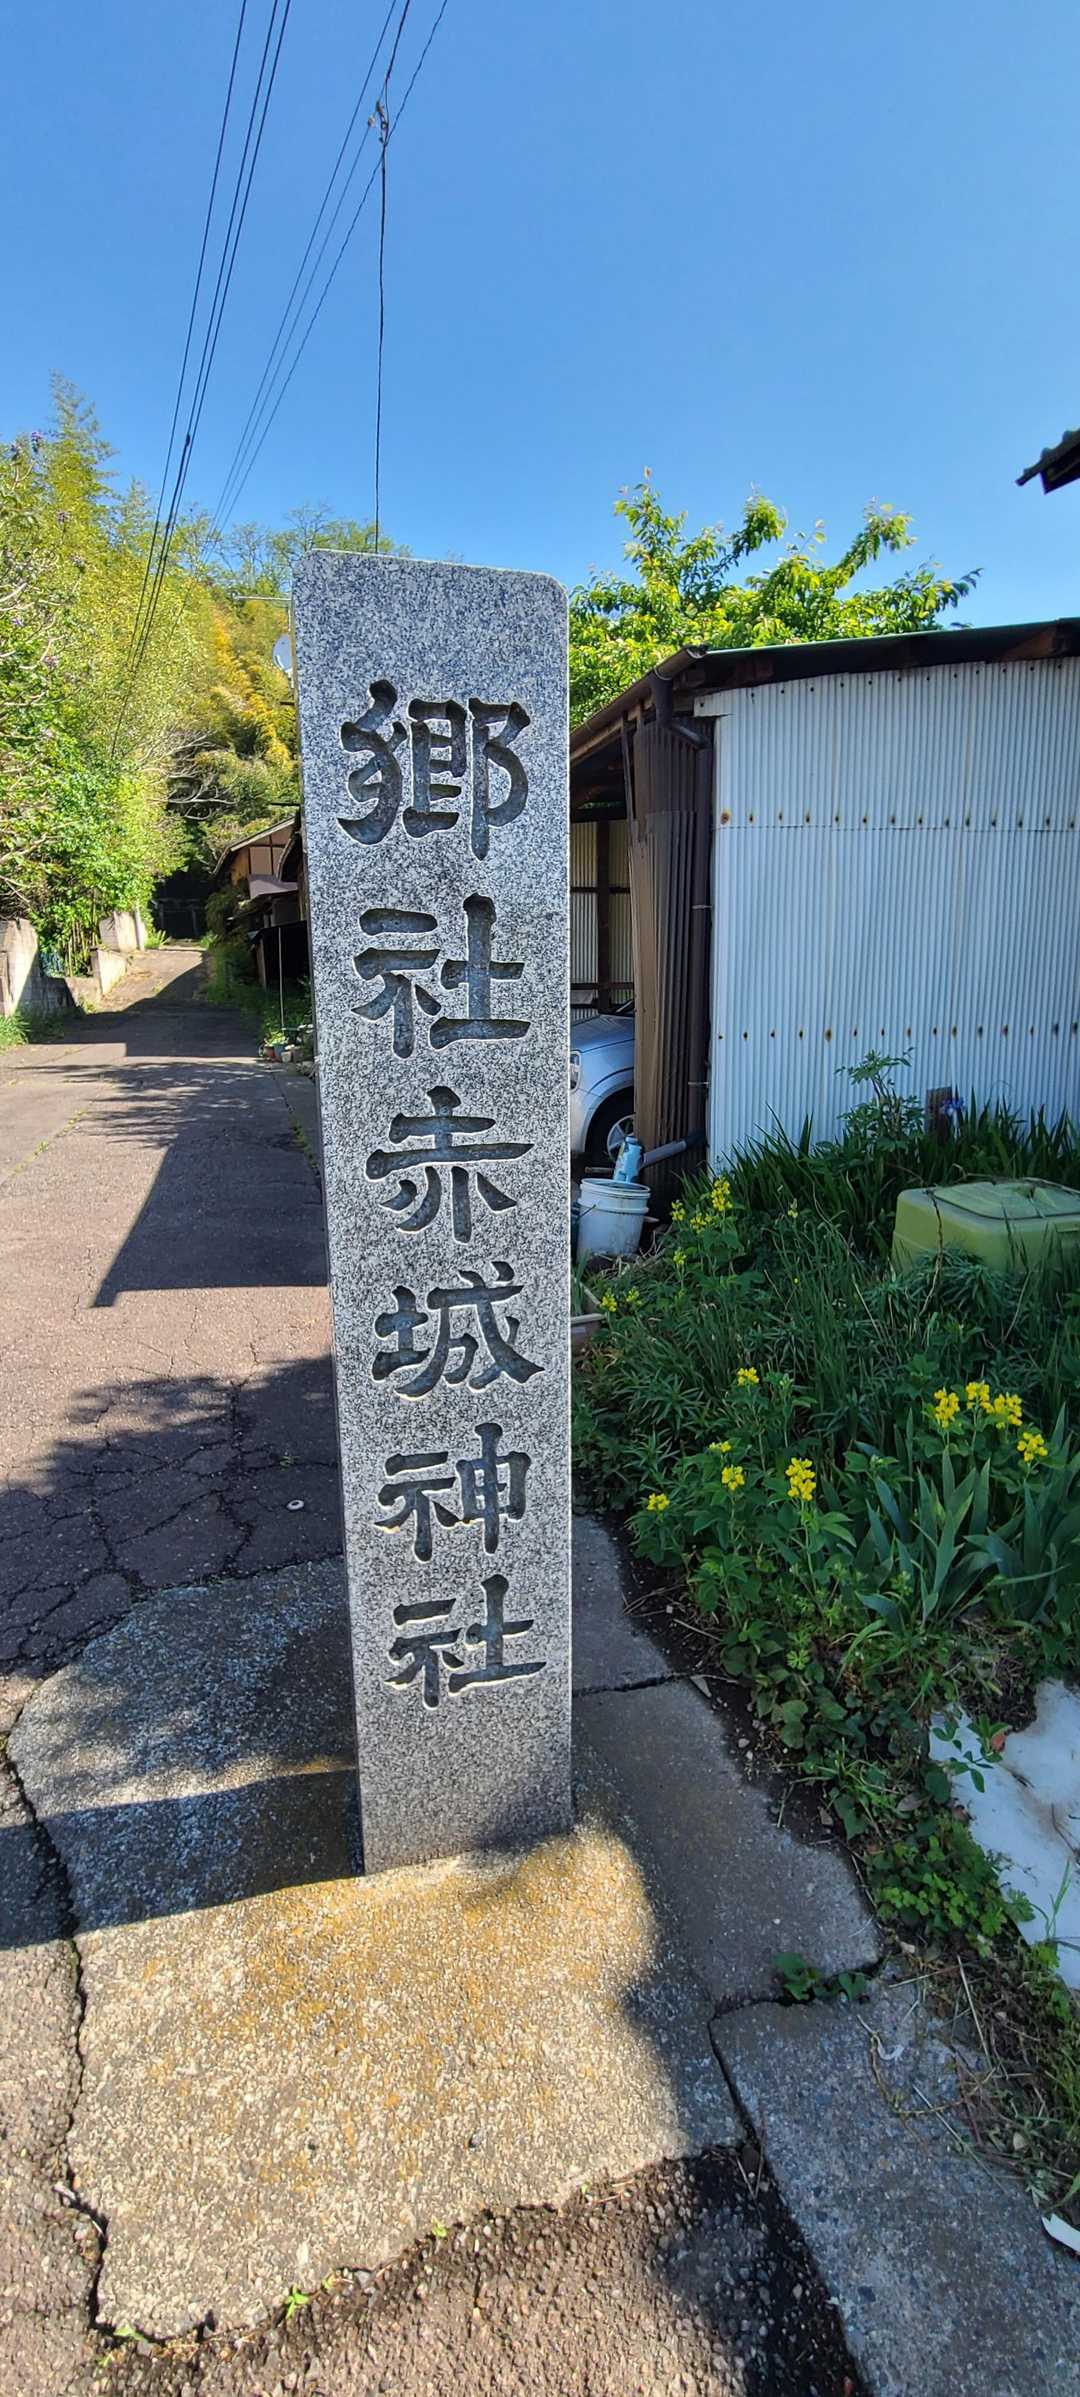 郷社赤城神社